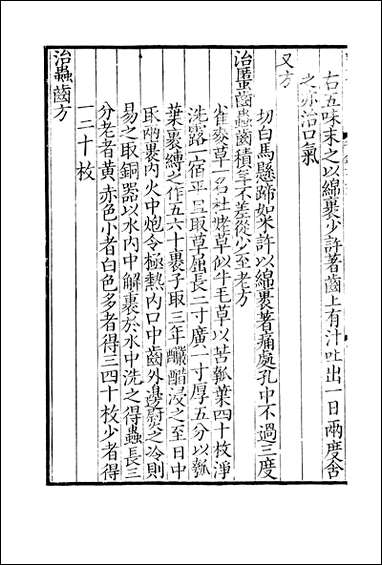 右五味末之以綿裹少許著齒上有汁吐出一日兩度含
之亦治口氣
又方
切白馬懸蹄如米許以綿裹著痛處孔中不過三度
治䘌齒蟲齒積年不差從少至老方
雀麥草一名杜姥草似牛毛草以苦瓠葉四十枚淨
洗露一宿平旦取草屈長二寸廣一寸厚五分以瓠
葉裹縛之作五六十裹子取三年釅醋浸之至日中
取兩裹内火中炮令極熱内口中齒外邊熨之冷則
易之取銅器以水内中解裹於水中洗之得蟲長三
分老者黃赤色小者白色多者得三四十枚少者得
一二十枚
治蟲齒方